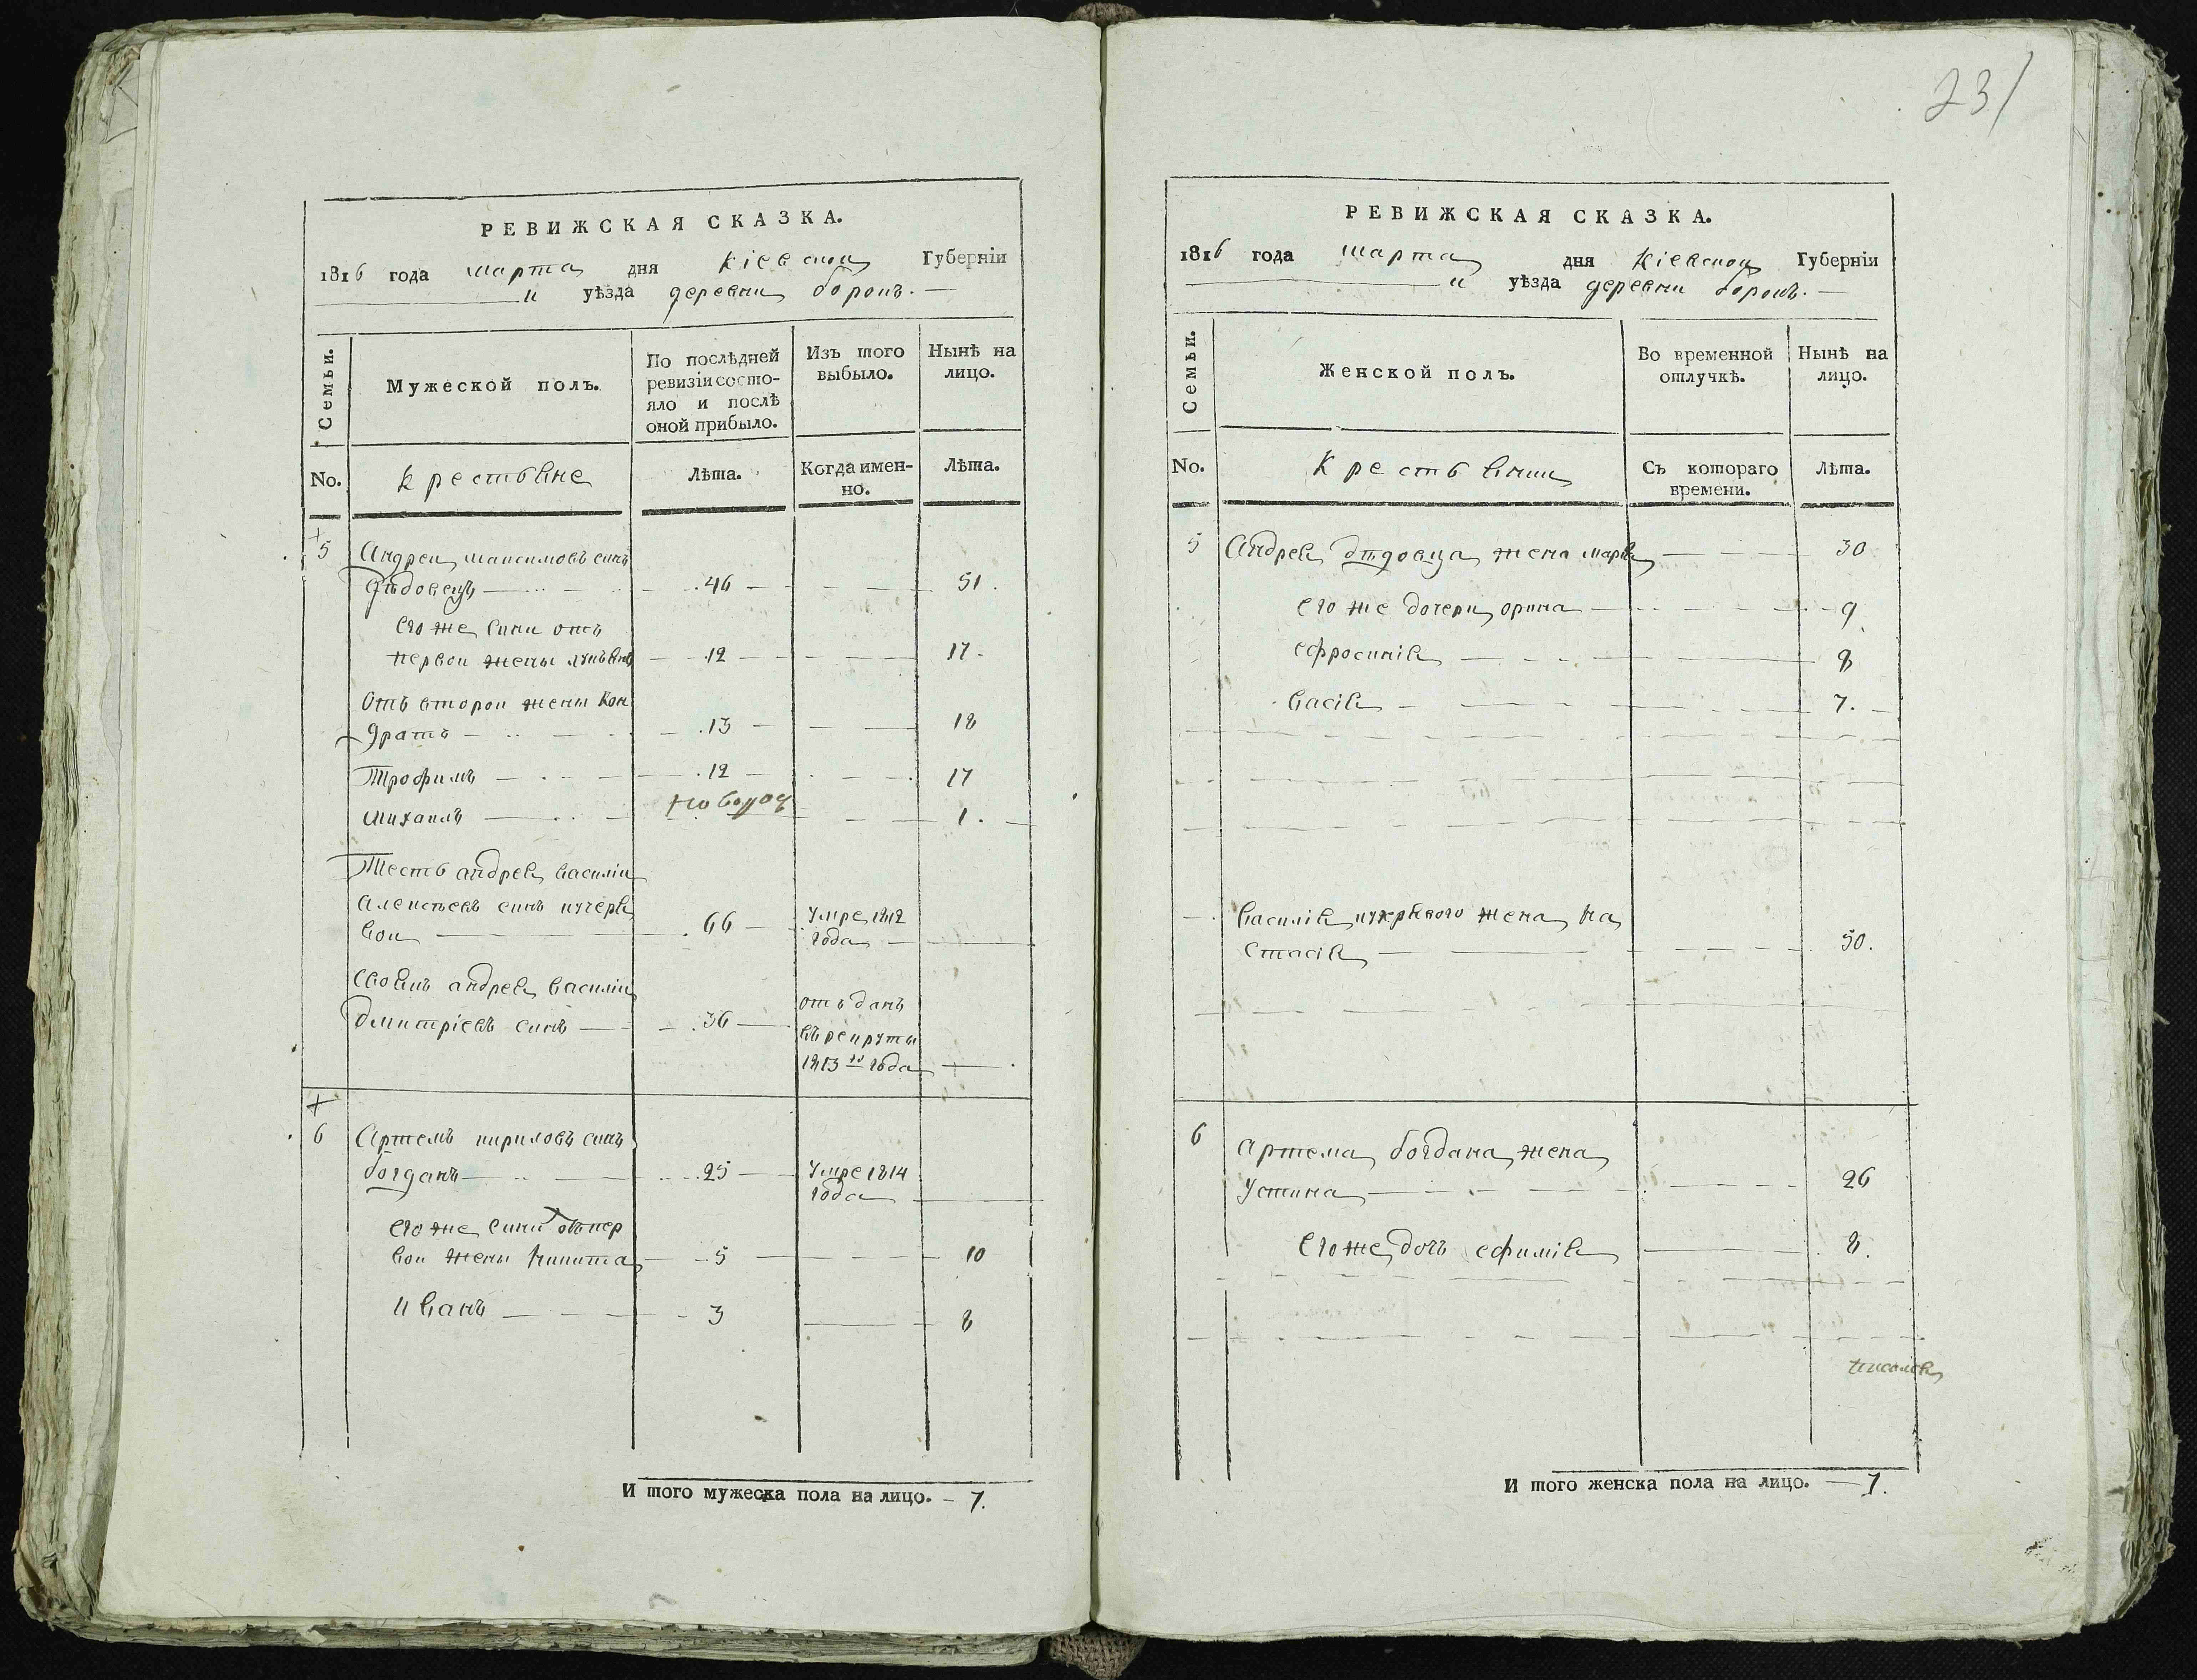 231
РЕВИЖСКАЯ СКАЗКА.
1816 года марта дня Кіевской Губерніи
уѣзда деревни
Семьи.
Мужеской полъ.
По послѣдней ревизіи состо-
яло и послѣ
оной прибыло.
Изъ того выбыло.
Нынѣ на лицо.
No.
Крестьяне
Лѣта.
Когда имен-
но.
Лѣта.
5 Андрей максимовъ синъ
46 51.
его же сини отъ
первои жены 12 17.
отъ второи жены кон
дратъ 13 18
Трофимъ 12 17
михаилъ 1.
Тесть андрея василіи
синъ
66 умре 1812
года
андрея василіи
дмитріевъ синъ 36 отъданъ
въ рекруты
1813 го года
6 Артемъ кириловъ синъ
богданъ 25 умре 1814
года
его же сини отъ пер
вои жены никита 5 10
иванъ 3 8
И того мужеска пола на лицо. 7.
РЕВИЖСКАЯ СКАЗКА.
1816 года марта дня Кіевской Губерніи
уѣзда деревни
Семьи.
Женской полъ.
Во временной отлучкѣ.
Нынѣ на лицо.
No.
Съ котораго времени.
Лѣта.
5 Андрея жена марья 30
его же дочери орина 9
ефросинія 8
7.
василія жена на
стасія 50.
6 артема богдана жена
устина 26
его же дочь ефимія 8.
И того женска пола на лицо. 7.